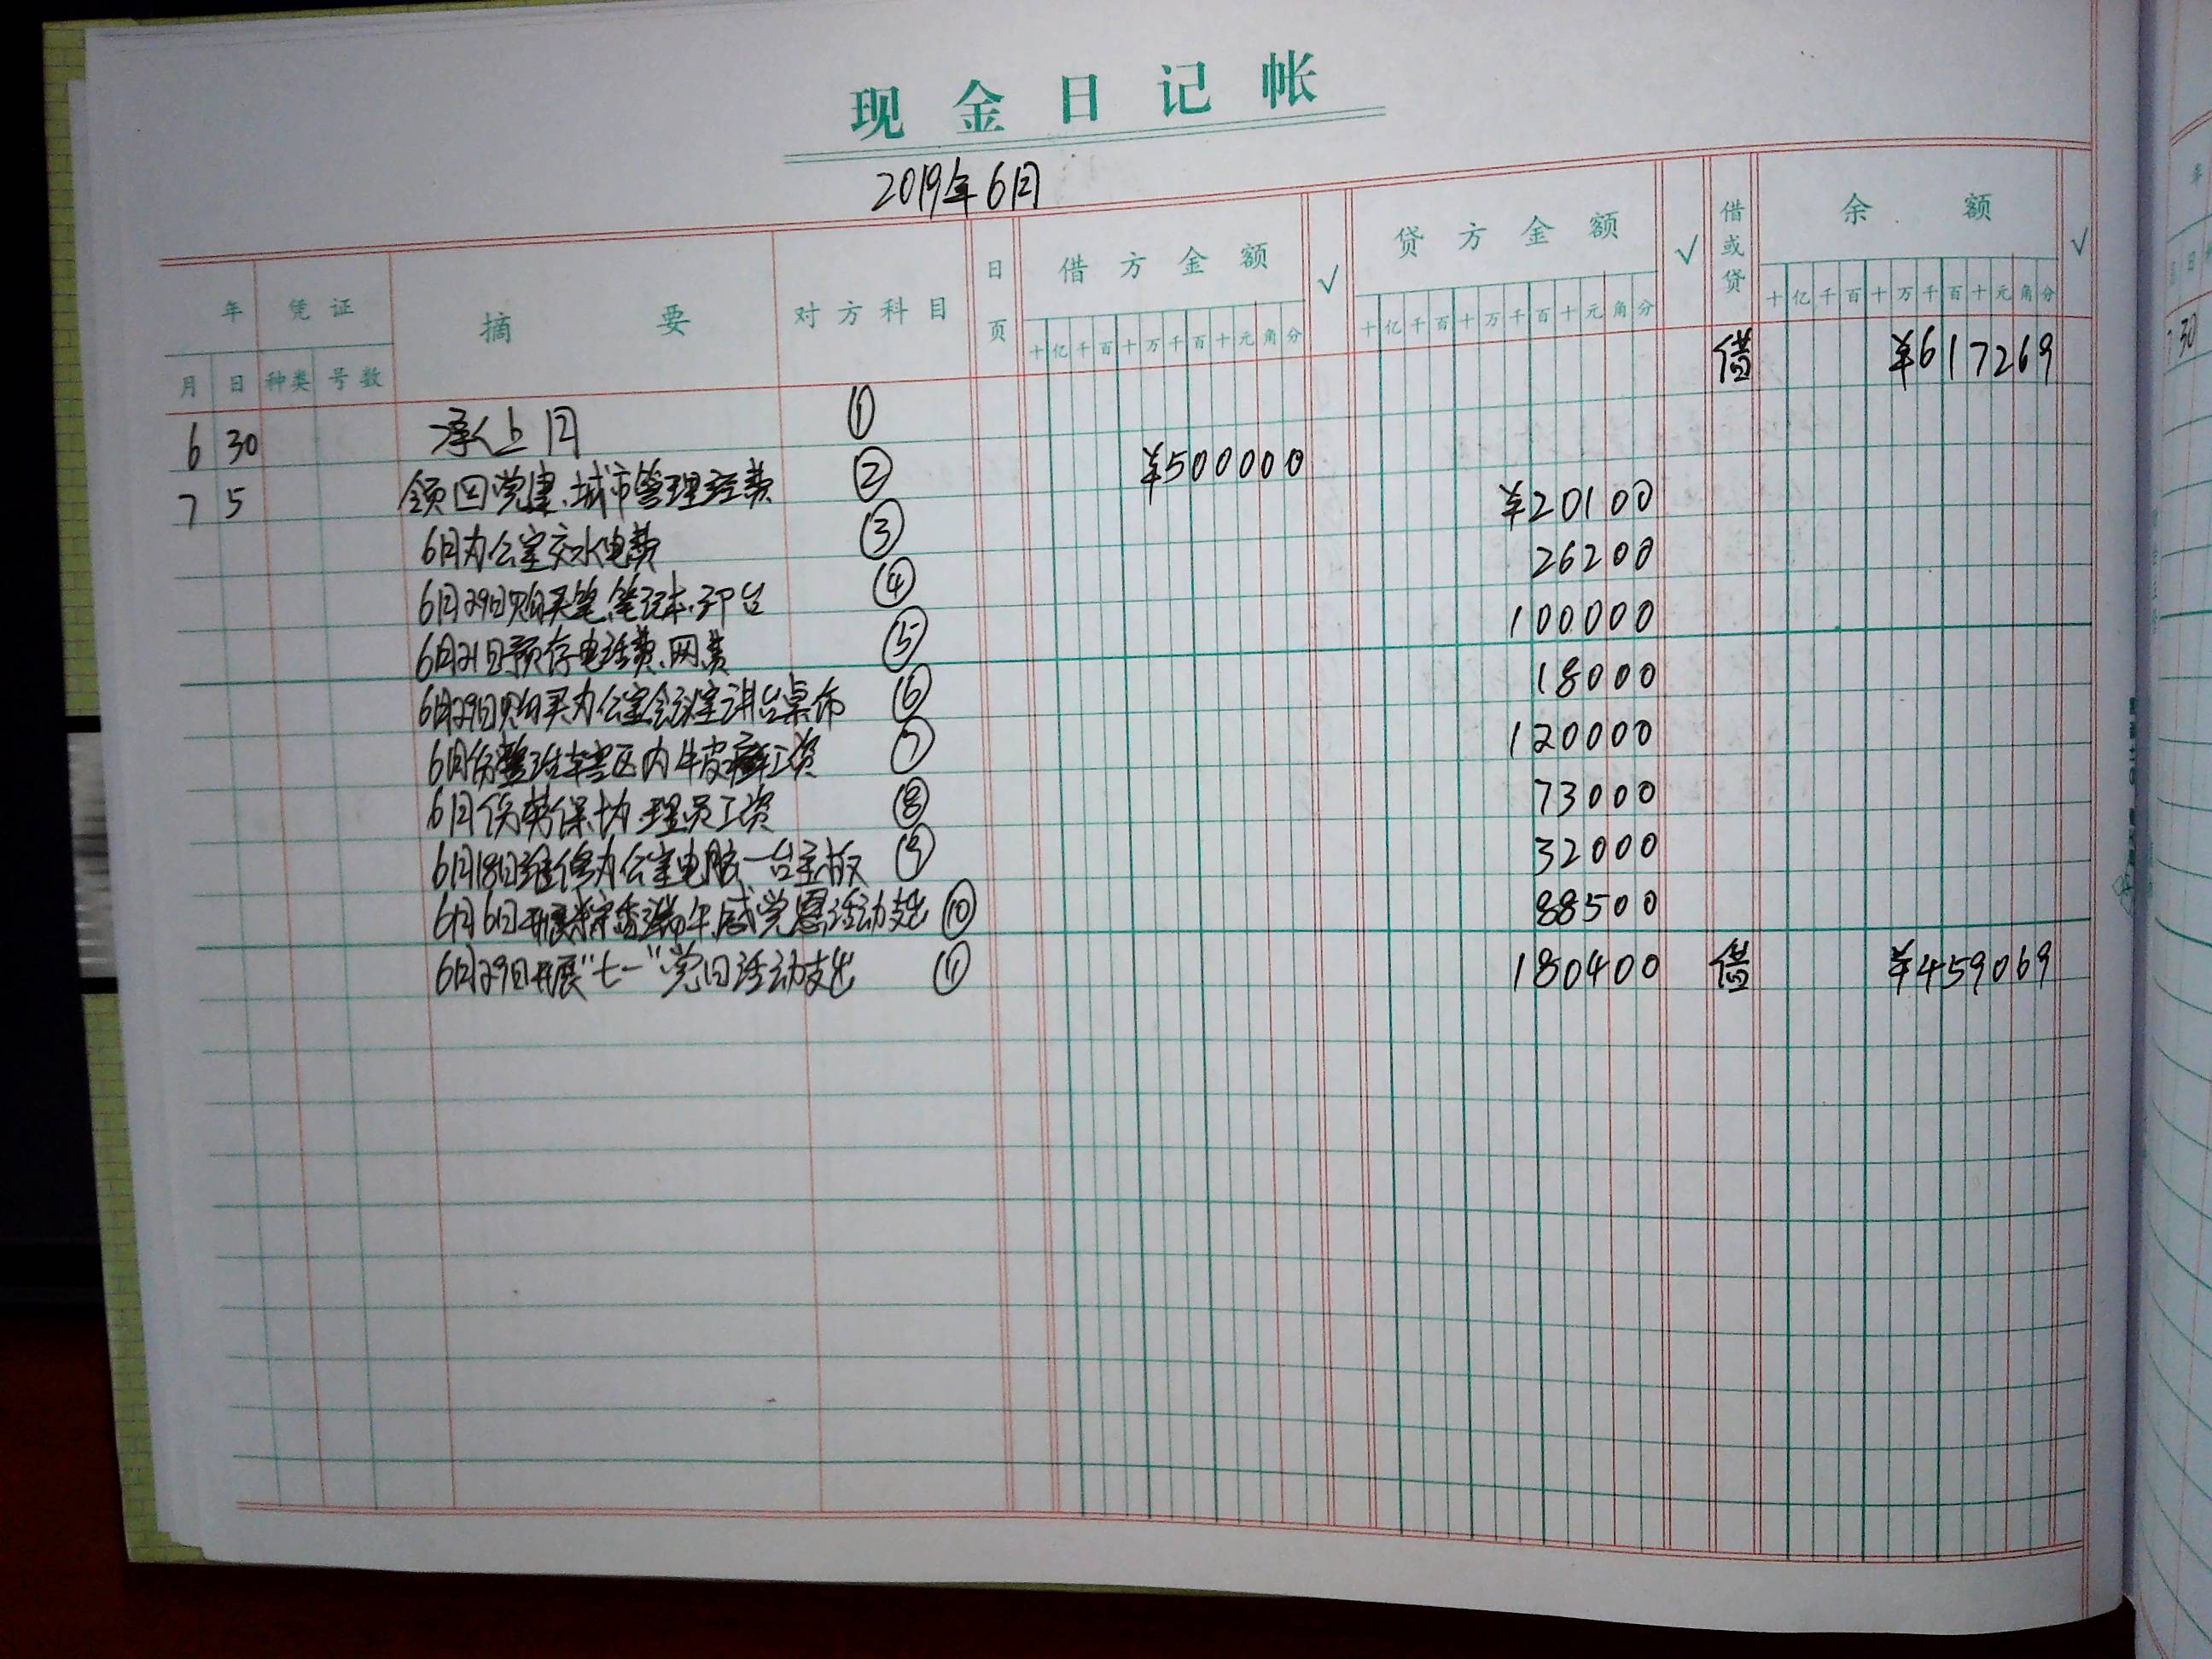 现金日记帐
2019年6月
年 凭证 摘要 对方科目 日页 借方金额 √ 贷方金额 √ 借或贷 余额 √
月 日 种类 号数 十亿千百十万千百十元角分 十亿千百十万千百十元角分 十亿千百十万千百十元角分
6 30 承上月 ① 借 ¥617269
7 5 领回党建、城市管理经费 ② ¥500000
6月办公室交水电费 ③ ¥20100
6月29日购买笔、笔记本、印台 ④ 26200
6月21日预存电话费、网费 ⑤ 100000
6月29日购买办公室会议室讲台桌布 ⑥ 18000
6月份整治辖区内牛皮癣工资 ⑦ 120000
6月份劳保协理员工资 ⑧ 73000
6月18日维修办公室电脑一台主板 ⑨ 32000
6月6日开展粽香端午感党恩活动支出 ⑩ 88500
6月29日开展"七一"党日活动支出 ⑪ 180400 借 ¥459069
年
日
7 30